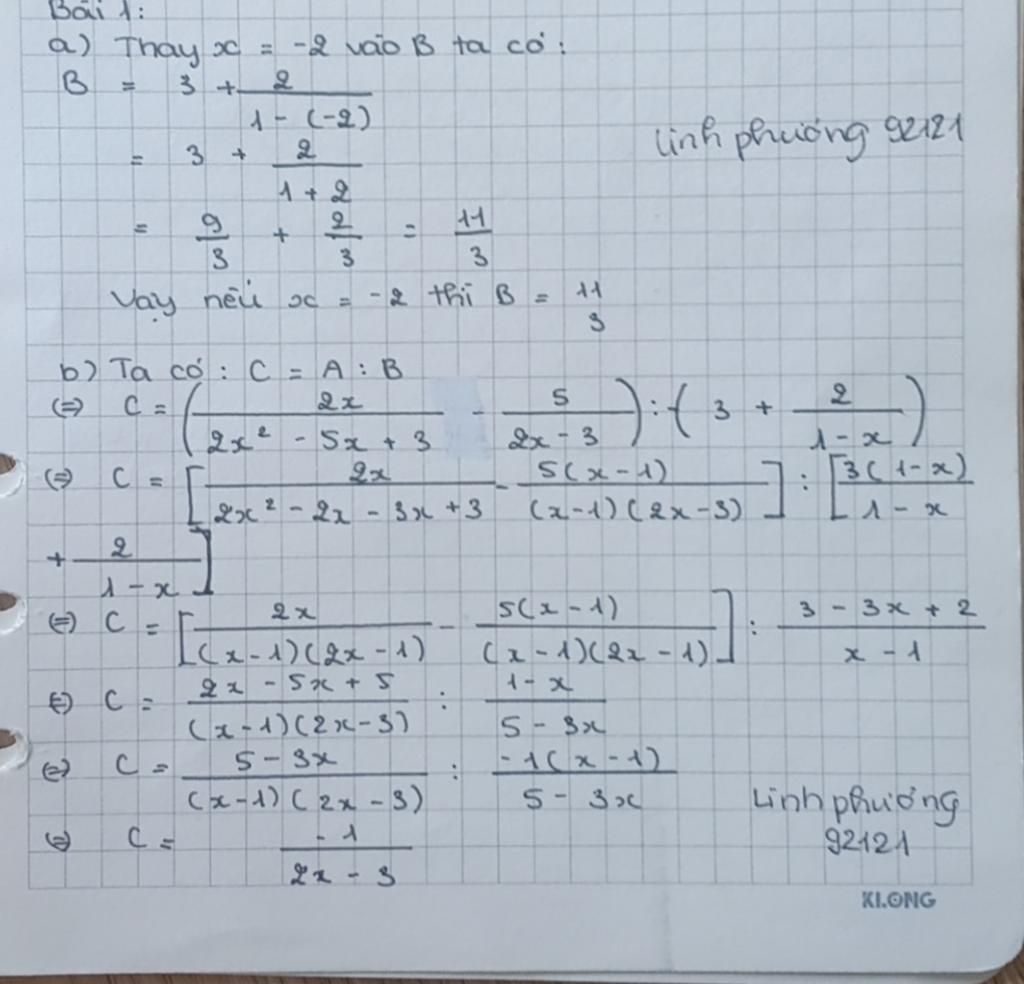 Bài 1:
a) Thay x = -2 vào B ta có:
B = 3 + 2/(1 - (-2))
= 3 + 2/(1 + 2)
= 9/3 + 2/3 = 11/3
Vạy nếu x = -2 thì B = 11/3
Linh phương 92121
b) Ta có: C = A : B
(=) C = (2x/(2x² - 5x + 3) - 5/(2x - 3)) : (3 + 2/(1 - x))
(=) C = [2x/(2x² - 2x - 3x + 3) - 5(x - 1)/((x - 1)(2x - 3))] : [3(1 - x)/(1 - x)
+ 2/(1 - x)]
(=) C = [2x/((x - 1)(2x - 1)) - 5(x - 1)/((x - 1)(2x - 1))] : (3 - 3x + 2)/(x - 1)
(=) C = (2x - 5x + 5)/((x - 1)(2x - 3)) : (1 - x)/(5 - 3x)
(=) C = (5 - 3x)/((x - 1)(2x - 3)) : -1(x - 1)/(5 - 3x)
(=) C = -1/(2x - 3)
Linh phương
92121
KLONG